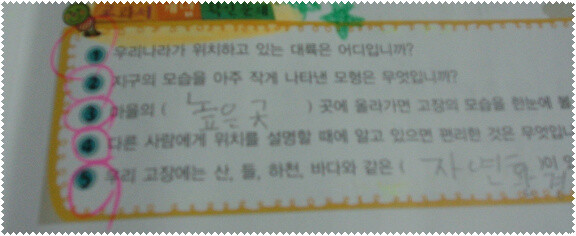 우리나라가 위치하고 있는 대륙은 어디입니까?
지구의 모습을 아주 작게 나타낸 모형은 무엇입니까?
마을의 ( 높은 곳 ) 곳에 올라가면 고장의 모습을 한눈에
다른 사람에게 위치를 설명할 때에 알고 있으면 편리한 것은 무엇입니
우리 고장에는 산, 들, 하천, 바다와 같은 ( 자연환경 )이